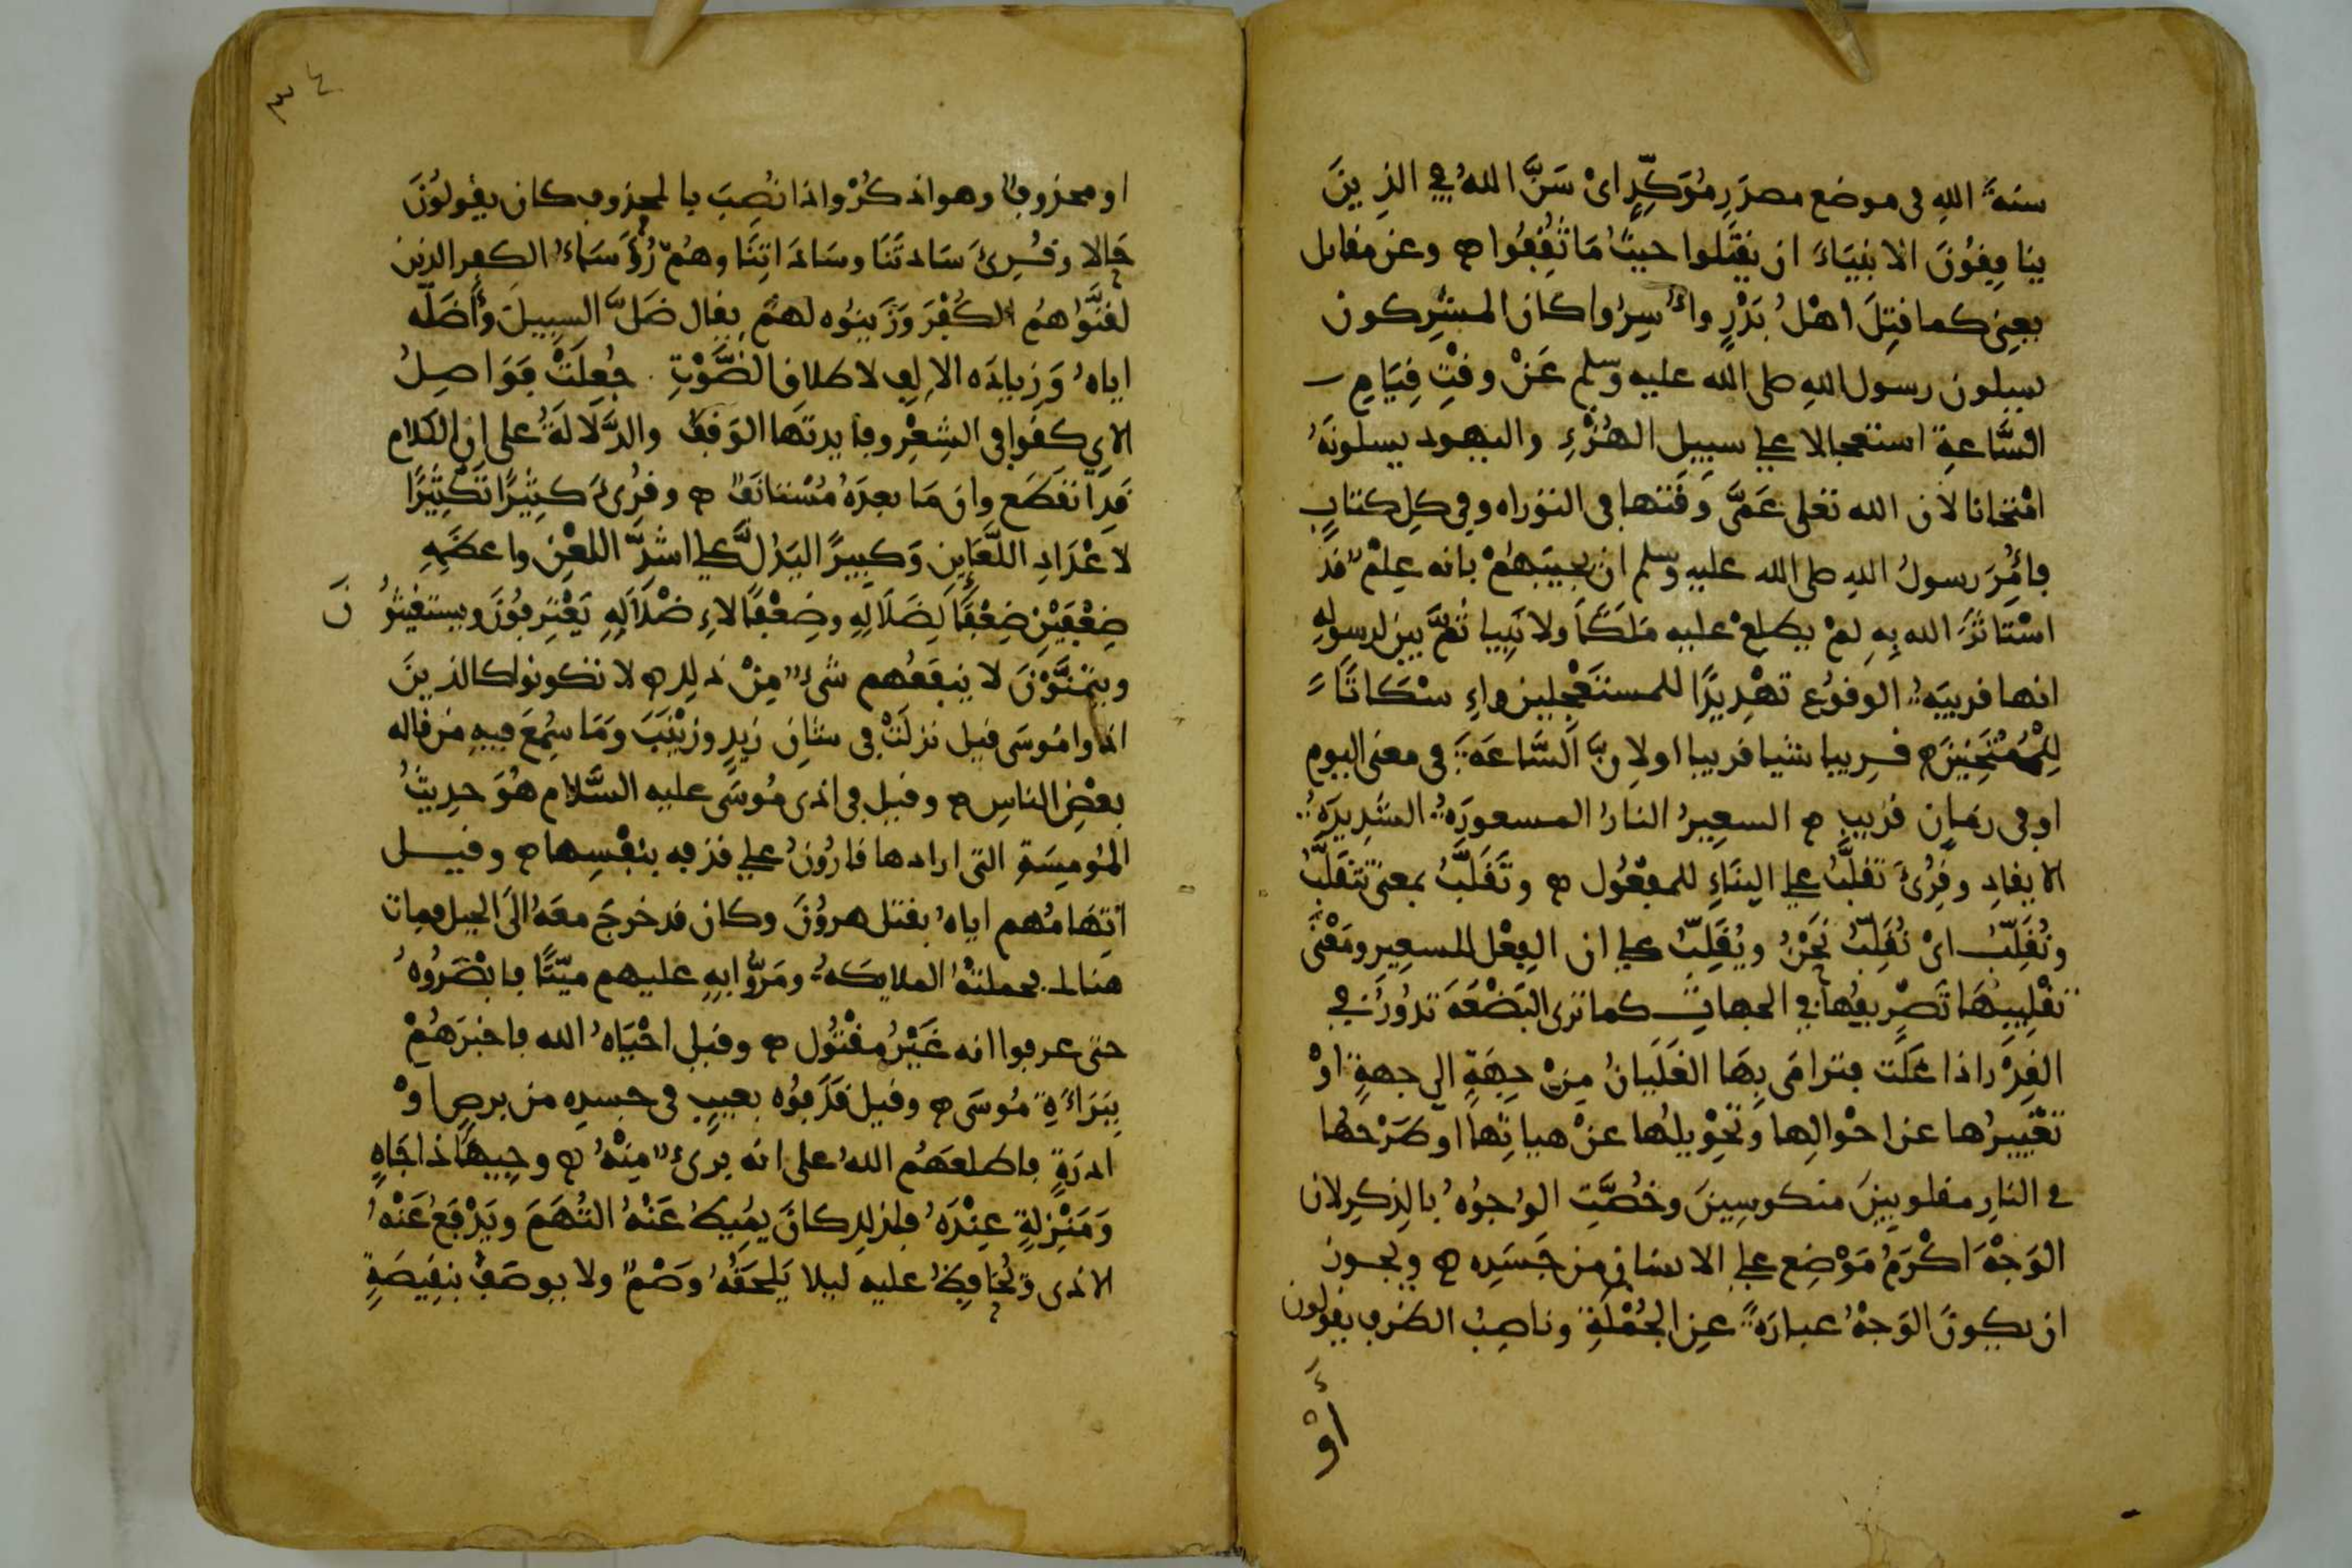 سنةَ اللهِ في موضع مصدَرٍ مُوَكِّدٍ اىْ سَنَّ اللهُ في الذِينَ
ينافِقُونَ الانبيَاءَ ان يقتَلوا حيثُ مَا ثُقِفُوا ۞ وعن مقاتل
يعني كما قتِلَ اهْلُ بَدْرٍ واُسِرُوا كان المشرِكون
يسيلون رسول اللهِ صلى الله عليه وسلم عَنْ وقْتِ قِيَامِ
السَّاعةِ استعجالا على سبيل الهُزْءِ واليهود يسلونَهُ
امْتحانا لأن الله تعلى عَمَّى وَقتها في التوراه وفي كلِ كتابٍ
فأمُرَ رسولُ اللهِ صلى الله عليه وسلم ان يجيبَهُمْ بانه عِلْمٌ قد
اسْتَاثَرَ الله بِهِ لمْ يطلِعْ عليه مَلَكًا ولا نَبِيا ثمَّ بين لرسولِهِ
انها قريبَةُ الوقوُع تهْدِيدًا للمستَعْجِلين واِسْكَاتًا
لِلْمُمْتَحِنِينَ ۞ قريبا شيا قريبا اولانَّ السَّاعَةَ في معنى اليوم
او في زمَانٍ قريبٍ ۞ السعِيرُ النارُ المسعورَةُ الشدِيدَةُ
الايقادِ وقُرِئَ تقلَّبُ على البنَاءِ للمفعُول ۞ وتَقَلَّبُ بمعنى تتقَلَّبُ
ونُقَلِّبُ اىْ نُقَلِّبُ نَحْنُ ويُقَلِّبُ على ان الفِعْل للسعِير ومَعْنَى
تقْلِيبِهَا تَصْرِيفُهَا في الجهاتِ كما ترى البَضْعَةَ تدُورُ في
القِدْر اذا غلَت فترامَى بِهَا الغَلَيَانُ مِنْ جِهَةٍ الى جهةٍ اوْ
تغْييرُها عن احْوالِها وتَحْوِيلُها عنْ هياتِها او طَرْحُها
في النارِ مقلوبِينَ منكوسِينَ وخُصَّتِ الوُجوُهُ بالذِكرِ لان
الوَجْهَ اكْرَمُ مَوْضِعٍ على الانسانِ من جَسَدِه ۞ ويجوز
ان يكونَ الوَجْهُ عبارَةً عنِ الجُمْلَةِ وناصِبُ الظرف يقولون
أوْ
٣٤
او محذوفٌ وهو اذكُرْ واذا نُصِبَ بالمحذوف كان يقُولوُنَ
حَالا وقُرِئَ سَادتَنَا وسَادَاتِنَا وهُمْ رُؤَسَاءُ الكفر الذين
لقنُّواهُمُ الكُفْرَ وَزَينوُه لهمْ يقال ضَلَّ السبيلَ وأَضَلَّه
اياهُ وَزيادَه الالِفِ لاطلاقِ الصَّوْتِ جُعِلَتْ فوَاصِلُ
الايِ كقوافي الشِعْرِ وفايدتَها الوَقْفُ والدَّلالَةُ على انَّ الكلام
قدِ انقَطَع وان مَا بعدَهُ مُسْتانَفٌ ۞ وقُرِئَ كثِيرًا تَكْثِيرًا
لاعْدَادِ اللَّعَاينِ وَكبِيرًا ليَدُلَّ على اشدِّ اللعْنِ واعظَمِهِ
ضِعْفَيْنِ ضِعْفًا لِضَلالِهِ وضِعْفًا لاءِضْلالِهِ يَعْتَرِفوُنَ ويستغيثوُنَ
ويتمنَّوْنَ لا ينفَعُهم شيءٌ مِنْ ذلك ۞ لا تكونوا كالذينَ
اذوا مُوسَى قيل نزلَتْ في شانِ زيدٍ وزيْنَبَ وَمَا سُمِعَ فيهِ من قاله
بعْضِ الناسِ ۞ وقيل في اذى مُوسَى عليه السَّلام هُوَ حدِيثُ
المُومِسَةِ التي ارادها قارُونُ على قذفه بنفْسِها ۞ وقيل
اتهَامُهم اياهُ بقتل هروُنَ وكان قد خرجَ معَهُ الَى الجبل فمات
هنالك فحملتْهُ الملايكةُ ومَرُّوا به عليهم ميّتًا فابْصَروُهُ
حتى عرفوا انه غَيْرُ مقْتوُل ۞ وقيل احْيَاهُ الله فاخبرَهُمْ
بِبَرَاءَةِ مُوسَى ۞ وقيل قَذَفوُه بعيبٍ في جسدِه من برصٍ اوْ
ادرَةٍ فاطلعَهُم اللهُ على انه برىٌ مِنْهُ ۞ وجِيهًا ذا جَاهٍ
وَمَنْزِلةٍ عِنْدَهُ فلذلك كانَ يمُيطُ عَنْهُ التُهَمَ ويَدْفَعُ عَنْهُ
الاذى ويُحَافِظُ عليه ليلا يَلحَقَهُ وَصْمٌ ولا يوصَفَ بنقِيصَةٍ